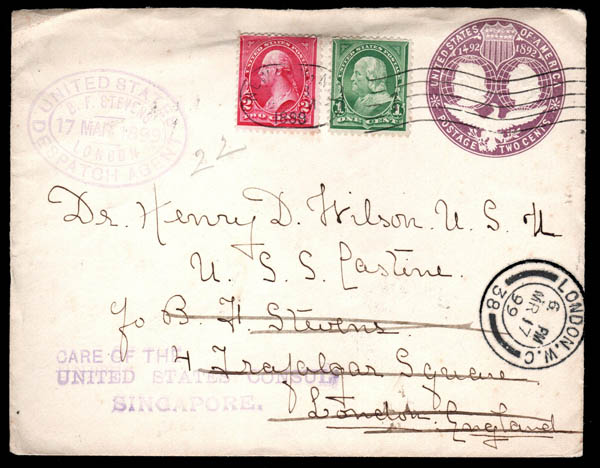 UNITED STATES OF AMERICA
1492 1892
POSTAGE TWO CENTS
UNITED STATES POSTAGE
2 2
TWO CENTS
UNITED STATES POSTAGE
1 1
ONE CENT
1899
UNITED STATES
B. F. STEVENS
17 MAR 1899
LONDON
DESPATCH AGENT
22
Dr. Henry D. Wilson. U. S. N
U. S. S. Castine.
c/o B. F. Stevens
4 Trafalgar Square
London. England
CARE OF THE
UNITED STATES CONSUL
SINGAPORE.
LONDON.W.C
6 PM
MR 17
99
38